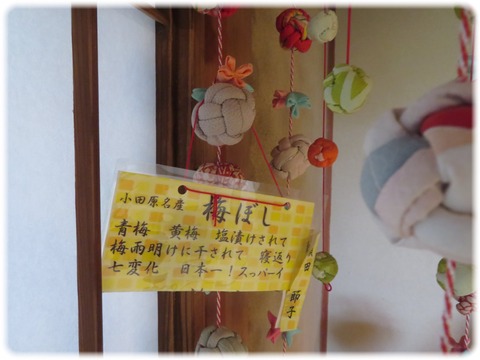 小田原名産 梅ぼし
青梅 黄梅 塩漬けされて
梅雨明けに干されて 寝返り
七変化 日本一!スッパーイ
田
節子